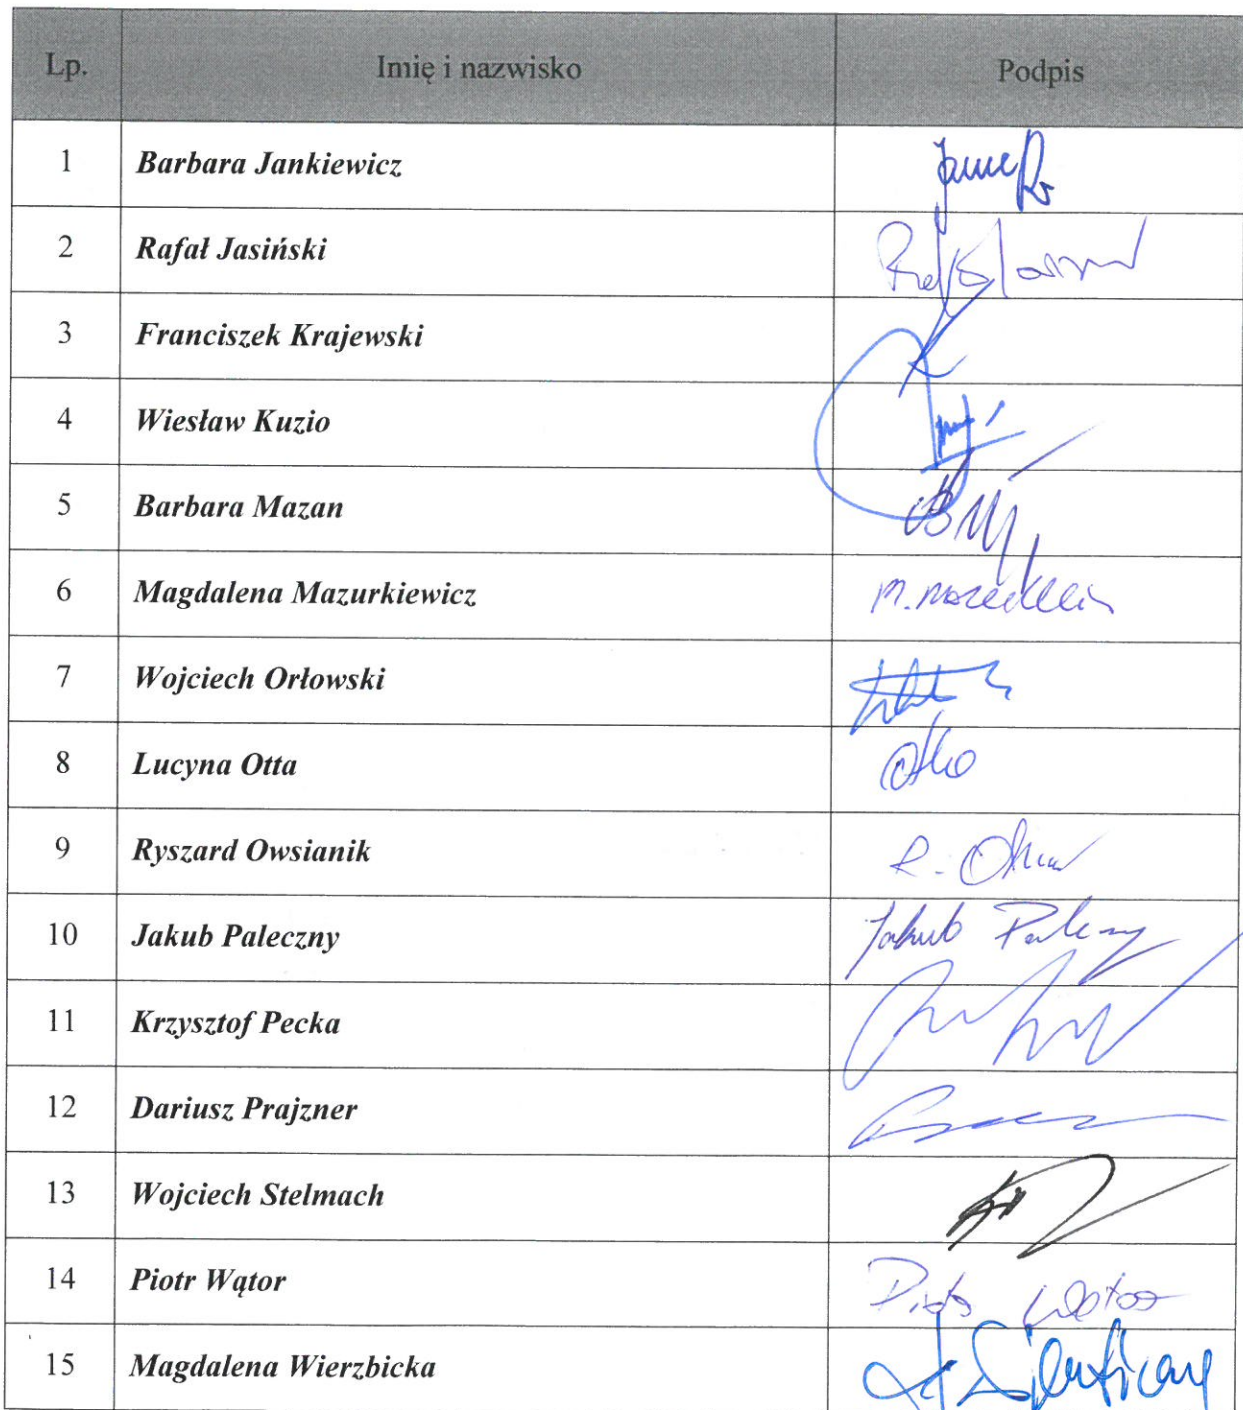 Lp. Imię i nazwisko Podpis
1 Barbara Jankiewicz
2 Rafał Jasiński
3 Franciszek Krajewski
4 Wiesław Kuzio
5 Barbara Mazan
6 Magdalena Mazurkiewicz
7 Wojciech Orłowski
8 Lucyna Otta
9 Ryszard Owsianik
10 Jakub Paleczny Jakub Paleczny
11 Krzysztof Pecka
12 Dariusz Prajzner
13 Wojciech Stelmach
14 Piotr Wątor Piotr Wątor
15 Magdalena Wierzbicka